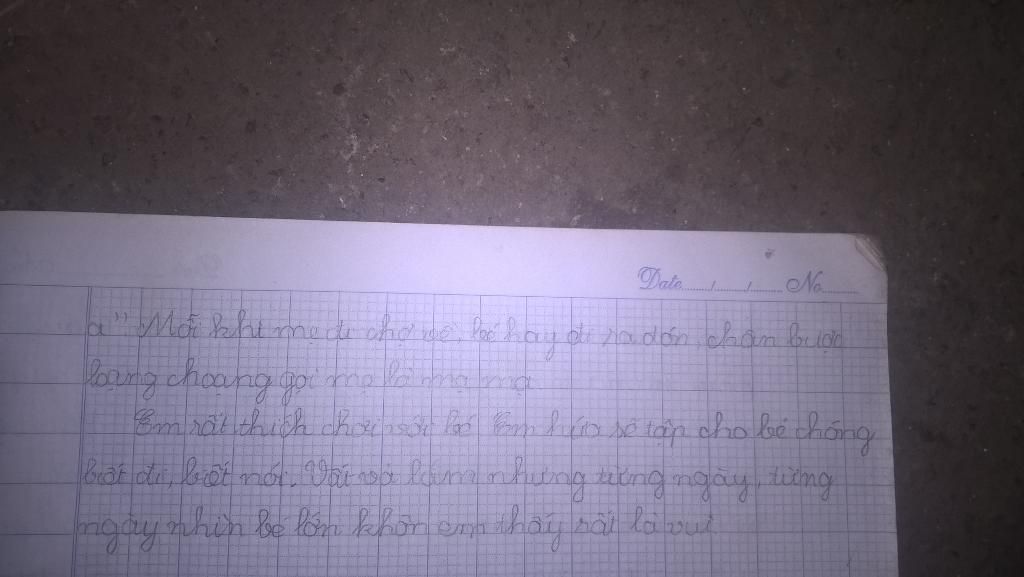 Date...../...../..... No.....
a" Mỗi khi mẹ đi chợ về, bé hay đi ra đón, chân bước
loạng choạng gọi mẹ là mạ mạ
Em rất thích chơi với bé Em hứa sẽ tập cho bé chóng
biết đi, biết nói. Vất vả lắm nhưng từng ngày, từng
ngày nhìn bé lớn khôn em thấy rất là vui.